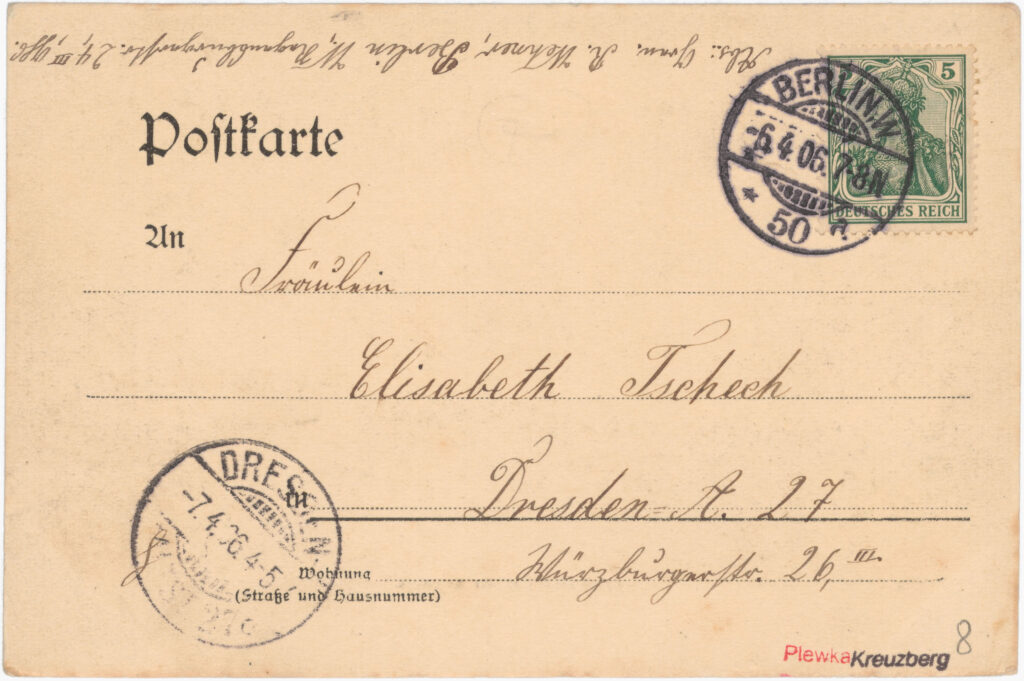 Abs.: Gran. R. Wehner, Berlin W, Regensburgerstr. 24, III
Postkarte
5
DEUTSCHES REICH
BERLIN.W.
-6.4.06.7-8N
* 50 a.
An
Fräulein
Elisabeth Tschech
in Dresden-A. 27
Würzburgerstr. 26, III.
Wohnung
(Straße und Hausnummer)
DRESDEN.
-7.4.06.4-5
PlewkaKreuzberg
8